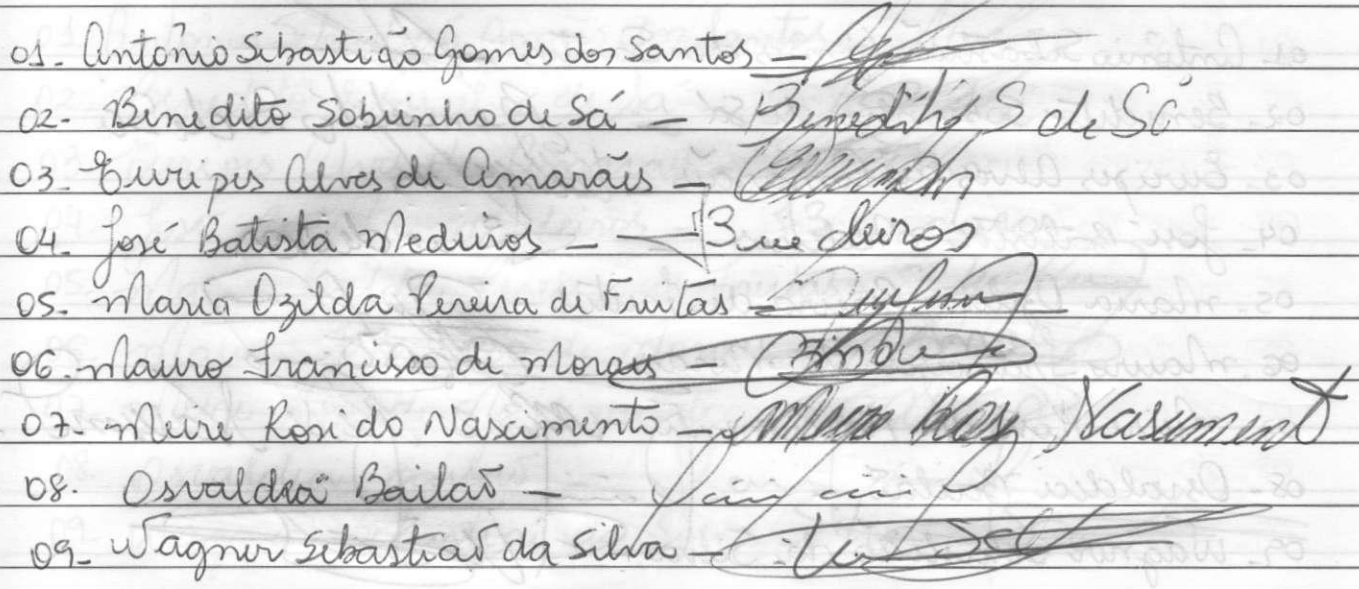 01- Antônio Sebastião Gomes dos Santos -
02- Benedito Sobrinho de Sá - Benedito S de Sá
03- Euripes Alves de Amarães -
04- José Batista Medeiros -
05- Maria Ozilda Pereira de Freitas -
06- Mauro Francisco de Morais -
07- Meire Rosi do Nascimento - Meire Rosi Nascimento
08- Osvaldea Bailão -
09- Wagner Sebastião da Silva -